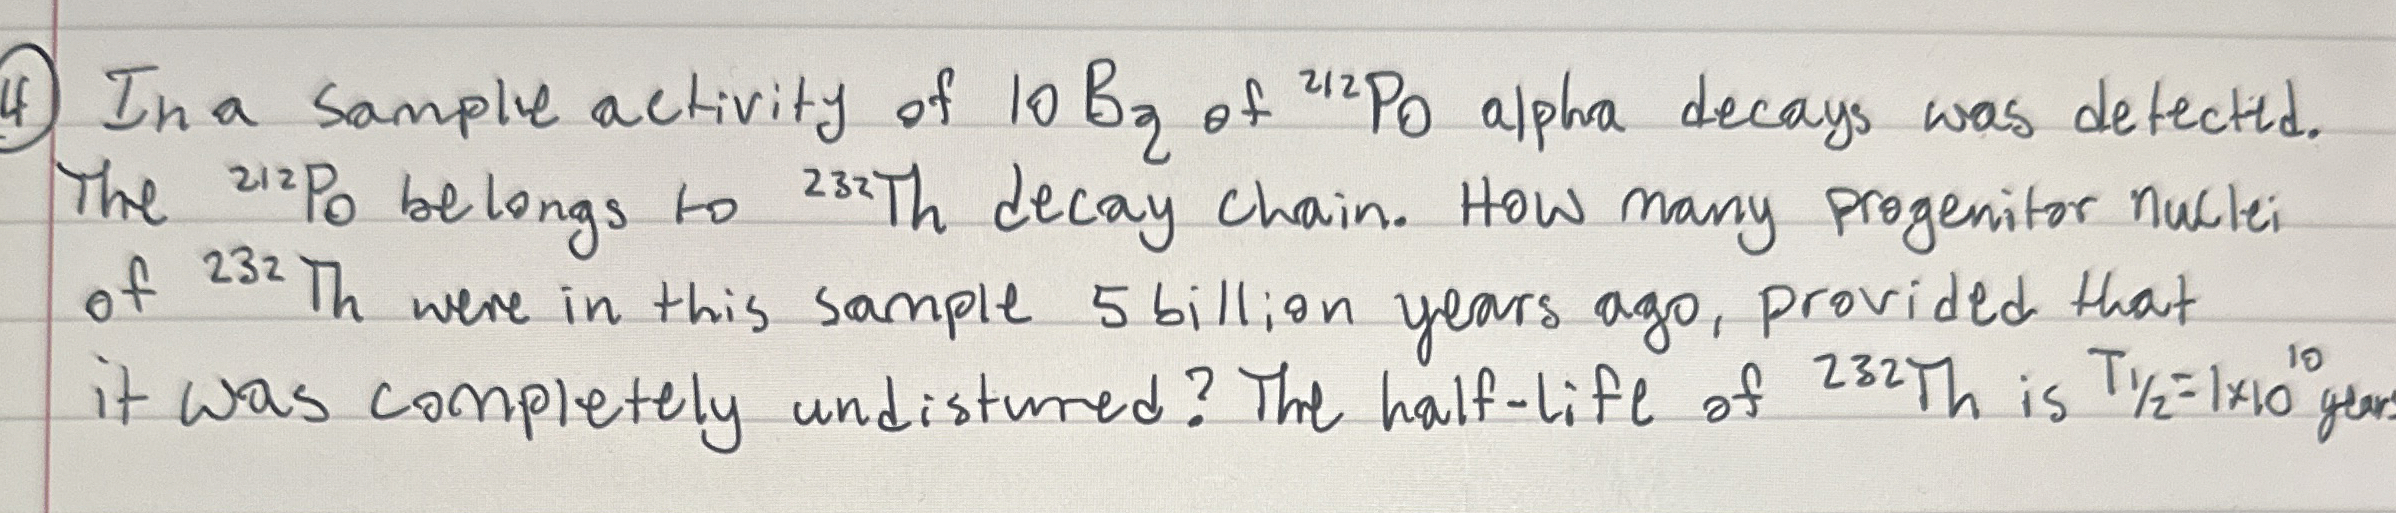 4 In a sample activity of 10 Bq of ²¹²Po alpha decays was detected.
The ²¹²Po belongs to ²³²Th decay chain. How many progenitor nuclei
of ²³²Th were in this sample 5 billion years ago, provided that
it was completely undistured? The half-life of ²³²Th is T½=1×10¹⁰ years